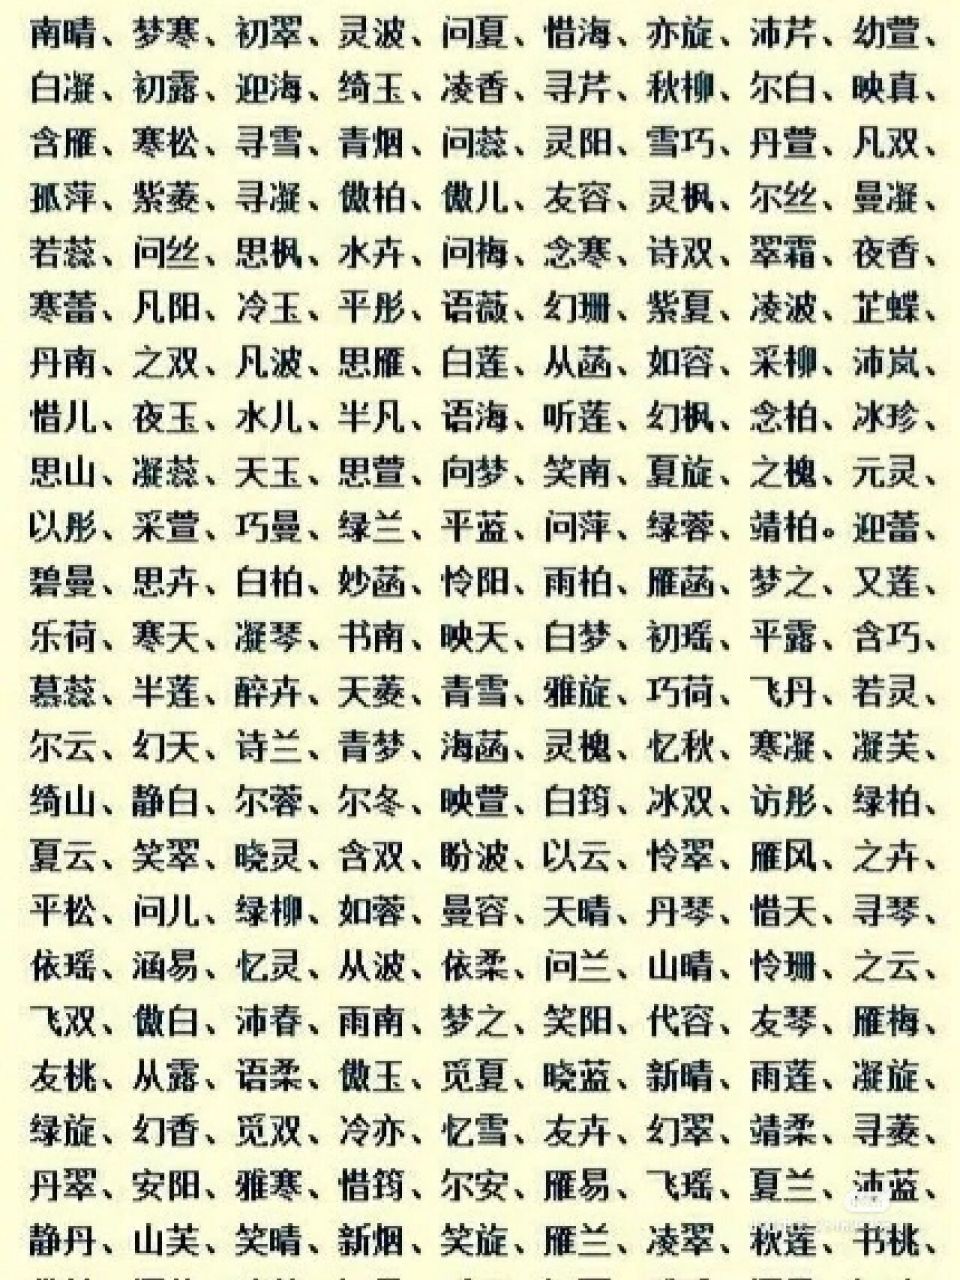 南晴、梦寒、初翠、灵波、问夏、惜海、亦旋、沛芹、幼萱、
白凝、初露、迎海、绮玉、凌香、寻芹、秋柳、尔白、映真、
含雁、寒松、寻雪、青烟、问蕊、灵阳、雪巧、丹萱、凡双、
孤萍、紫菱、寻凝、傲柏、傲儿、友容、灵枫、尔丝、曼凝、
若蕊、问丝、思枫、水卉、问梅、念寒、诗双、翠霜、夜香、
寒蕾、凡阳、冷玉、平彤、语薇、幻珊、紫夏、凌波、芷蝶、
丹南、之双、凡波、思雁、白莲、从菡、如容、采柳、沛岚、
惜儿、夜玉、水儿、半凡、语海、听莲、幻枫、念柏、冰珍、
思山、凝蕊、天玉、思萱、向梦、笑南、夏旋、之槐、元灵、
以彤、采萱、巧曼、绿兰、平蓝、问萍、绿蓉、靖柏。迎蕾、
碧曼、思卉、白柏、妙菡、怜阳、雨柏、雁菡、梦之、又莲、
乐荷、寒天、凝琴、书南、映天、白梦、初瑶、平露、含巧、
慕蕊、半莲、醉卉、天菱、青雪、雅旋、巧荷、飞丹、若灵、
尔云、幻天、诗兰、青梦、海菡、灵槐、忆秋、寒凝、凝芙、
绮山、静白、尔蓉、尔冬、映萱、白筠、冰双、访彤、绿柏、
夏云、笑翠、晓灵、含双、盼波、以云、怜翠、雁风、之卉、
平松、问儿、绿柳、如蓉、曼容、天晴、丹琴、惜天、寻琴、
依瑶、涵易、忆灵、从波、依柔、问兰、山晴、怜珊、之云、
飞双、傲白、沛春、雨南、梦之、笑阳、代容、友琴、雁梅、
友桃、从露、语柔、傲玉、觅夏、晓蓝、新晴、雨莲、凝旋、
绿旋、幻香、觅双、冷亦、忆雪、友卉、幻翠、靖柔、寻菱、
丹翠、安阳、雅寒、惜筠、尔安、雁易、飞瑶、夏兰、沛蓝、
静丹、山芙、笑晴、新烟、笑旋、雁兰、凌翠、秋莲、书桃、